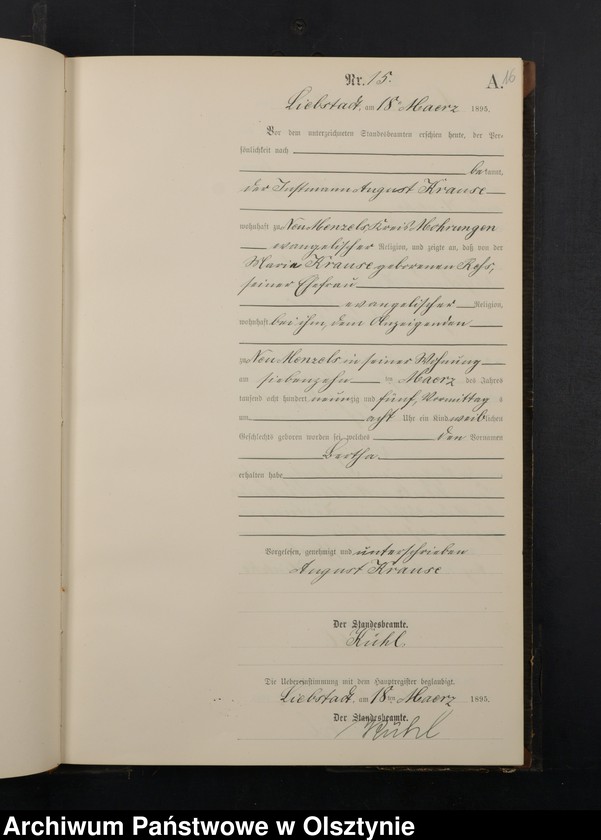 Nr. 15.
A. 16
Liebstadt, am 18ten Maerz 1895.
Vor dem unterzeichneten Standesbeamten erschien heute, der Per-
sönlichkeit nach
bekannt,
der Instmann August Krause
wohnhaft zu Neu Menzels, Kreis Mohrungen
evangelischer Religion, und zeigte an, daß von der
Maria Krause geborenen
seiner Ehefrau
evangelischer Religion,
wohnhaft bei ihm, dem Anzeigenden
zu Neu Menzels in seiner Wohnung
am siebenzehn ten Maerz des Jahres
tausend acht hundert neunzig und fünf, Vormittag s
um acht Uhr ein Kind weiblichen
Geschlechts geboren worden sei, welches den Vornamen
Bertha
erhalten habe
Vorgelesen, genehmigt und unterschrieben
August Krause
Der Standesbeamte.
Kühl
Die Uebereinstimmung mit dem Hauptregister beglaubigt.
Liebstadt, am 18ten Maerz 1895.
Der Standesbeamte.
Kühl
Archiwum Państwowe w Olsztynie